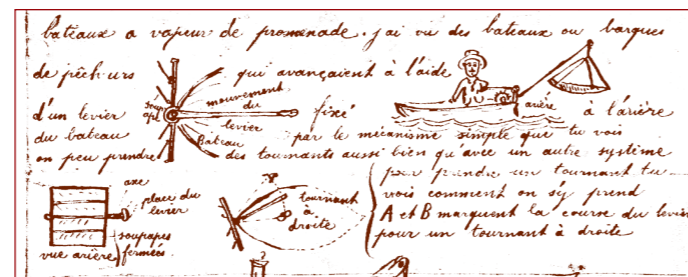 bateaux a vapeur de promenade. j'ai vu des bateaux ou barques
de pêcheurs qui avançaient à l'aide
d'un levier fixé à l'arière
du bateau par le mécanisme simple que tu vois
on peu prendre des tournants aussi bien qu'avec un autre système
pour prendre un tournant tu
vois comment on s'y prend
A et B marquent la course du levier
pour un tournant à droite
mouvement
du
levier
Bateau
arière
axe
place du
levier
soupapes
fermées
vue arière
tournant
à
droite